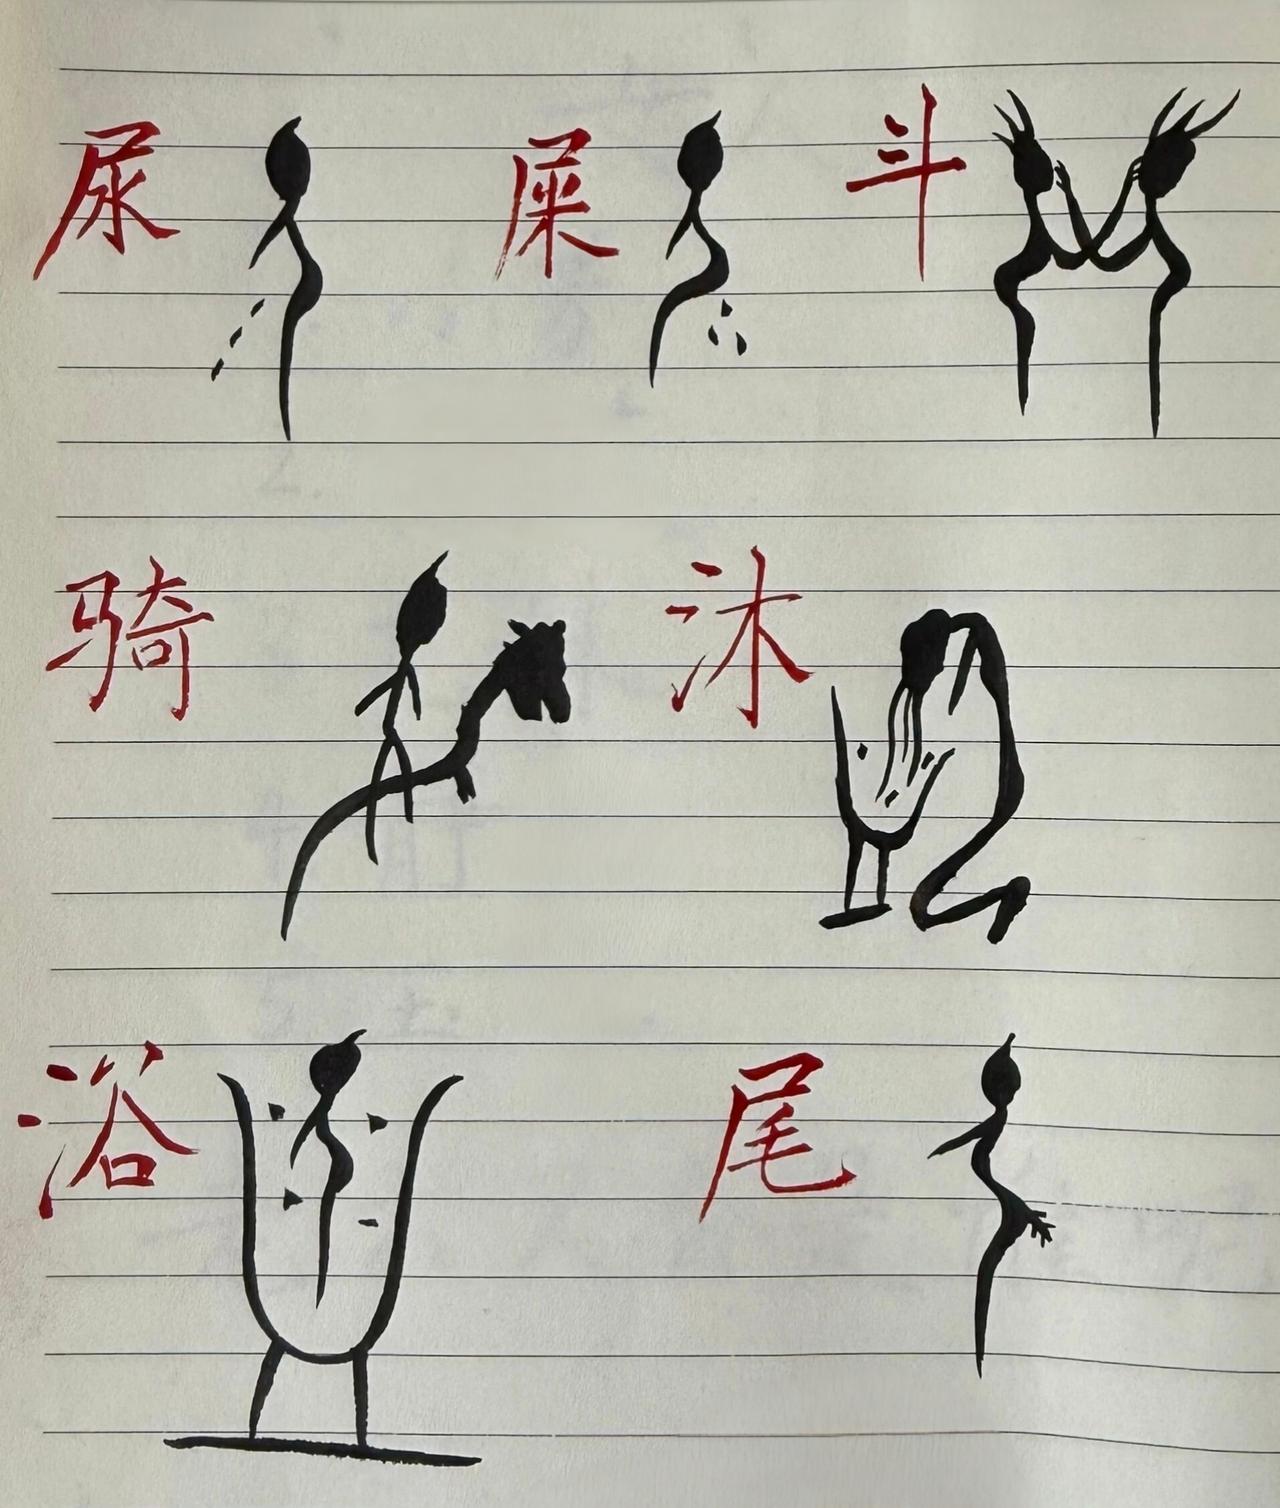 尿 屎 斗
骑 沐
浴 尾